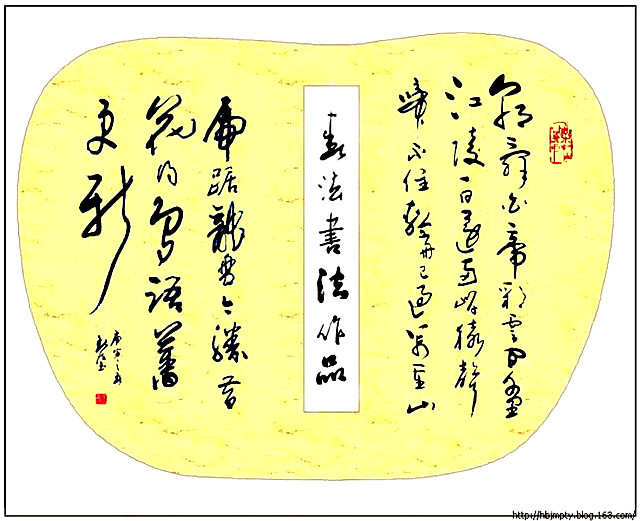 朝辞白帝彩云间千里
江陵一日还两岸猿声
啼不住轻舟已过万重山
法書法作品
虎踞龍盘今勝昔
花鸟語舊
更新
http://hbjmpty.blog.163.com/